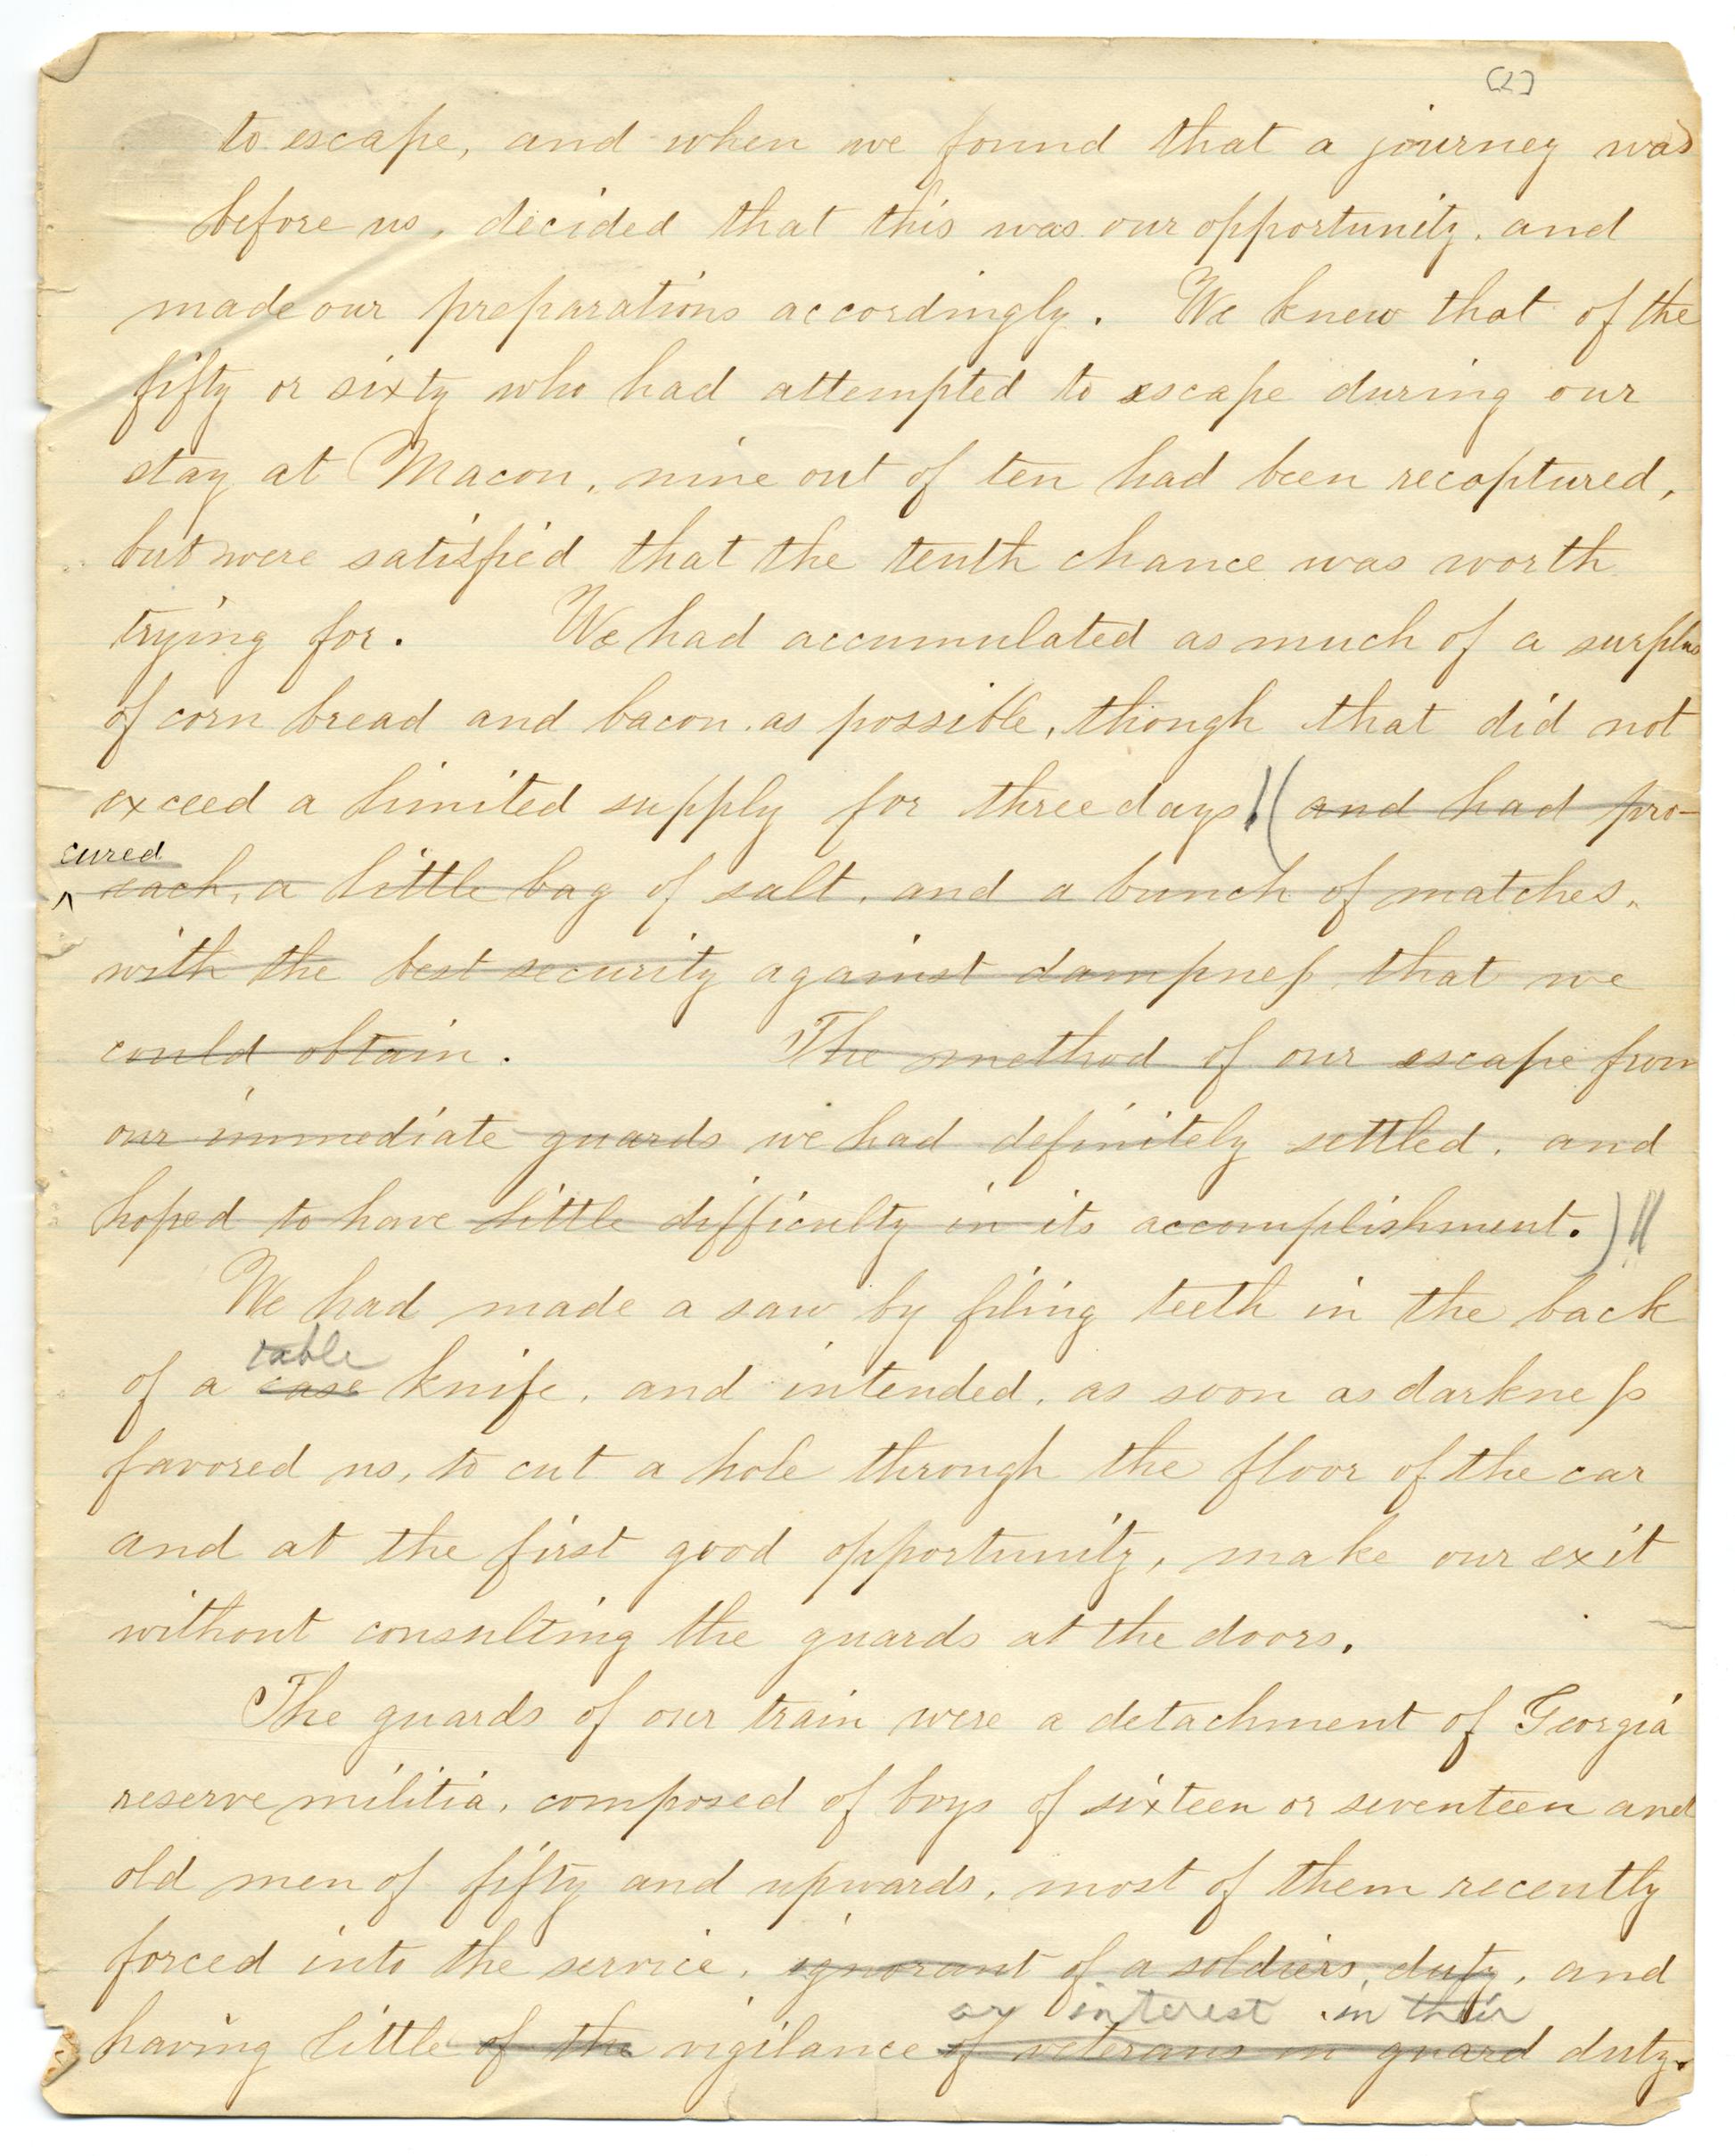 (2)
to escape, and when we found that a journey was
before us, decided that this was our opportunity, and
made our preparations accordingly. We knew that of the
fifty or sixty who had attempted to escape during our
stay at Macon, nine out of ten had been recaptured,
but were satisfied that the tenth chance was worth
trying for. We had accumulated as much of a surplus
of corn bread and bacon as possible, though that did not
exceed a limited supply for three days. (and had pro-
cured
each, a little bag of salt, and a bunch of matches,
with the best security against dampness that we
could obtain. The method of our escape from
our immediate guards we had definitely settled, and
hoped to have little difficulty in its accomplishment.)
We had made a saw by filing teeth in the back
table
of a case knife, and intended, as soon as darkness
favored us, to cut a hole through the floor of the car
and at the first good opportunity, make our exit
without consulting the guards at the doors.
The guards of our train were a detachment of Georgia
reserve militia, composed of boys of sixteen or seventeen and
old men of fifty and upwards, most of them recently
forced into the service, ignorant of a soldiers duty, and
or interest in their
having little of the vigilance of veterans in guard duty.